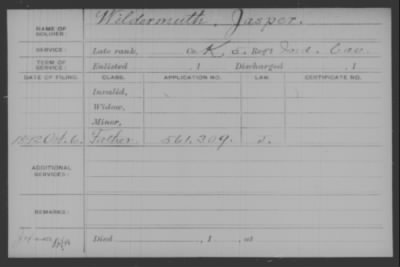 NAME OF SOLDIER: Wildermuth, Jasper.
SERVICE: Late rank, Co. K, 5, Reg't Ind. Cav.
TERM OF SERVICE: Enlisted , 1 Discharged , 1
DATE OF FILING. CLASS. APPLICATION NO. LAW. CERTIFICATE NO.
Invalid,
Widow,
Minor,
Oct. 6. Father 561,309. J.
ADDITIONAL SERVICES:
REMARKS:
Died , 1 , at